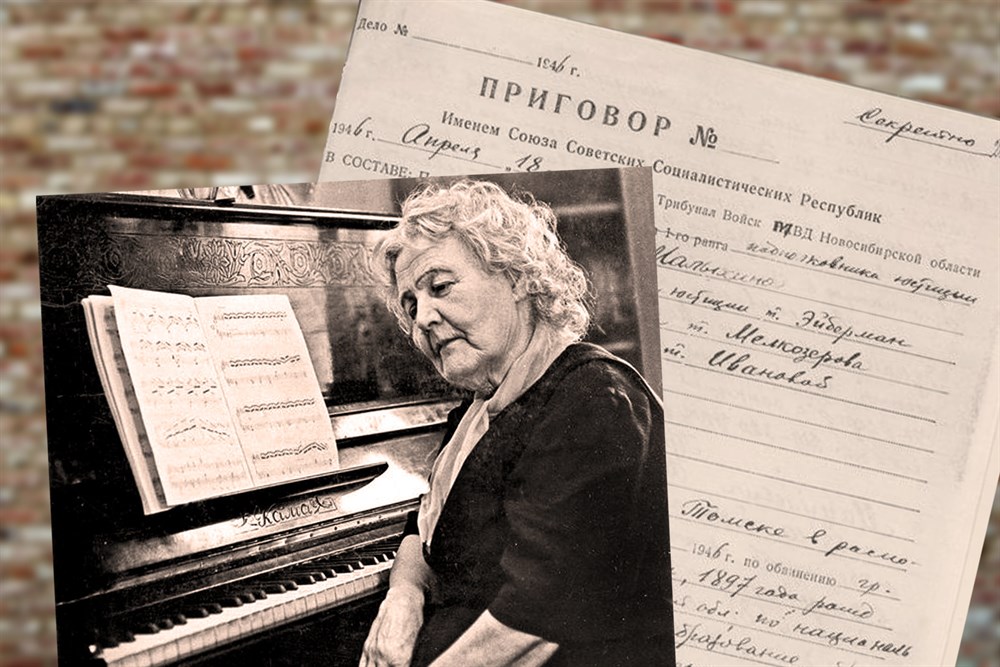 Дело №
1946 г.
ПРИГОВОР №
Секретно
Именем Союза Советских Социалистических Республик
1946 г. Апреля „18
В СОСТАВЕ: П
Трибунал Войск МВД Новосибирской области
1-го ранга подполковника юстиции
Малыхина
юстиции т. Эйберман
т. Мелкозерова
т. Ивановой
Томске в распо-
1946 г. по обвинению гр.
, 1897 года рожд.
обл. по националь
образование
Кама